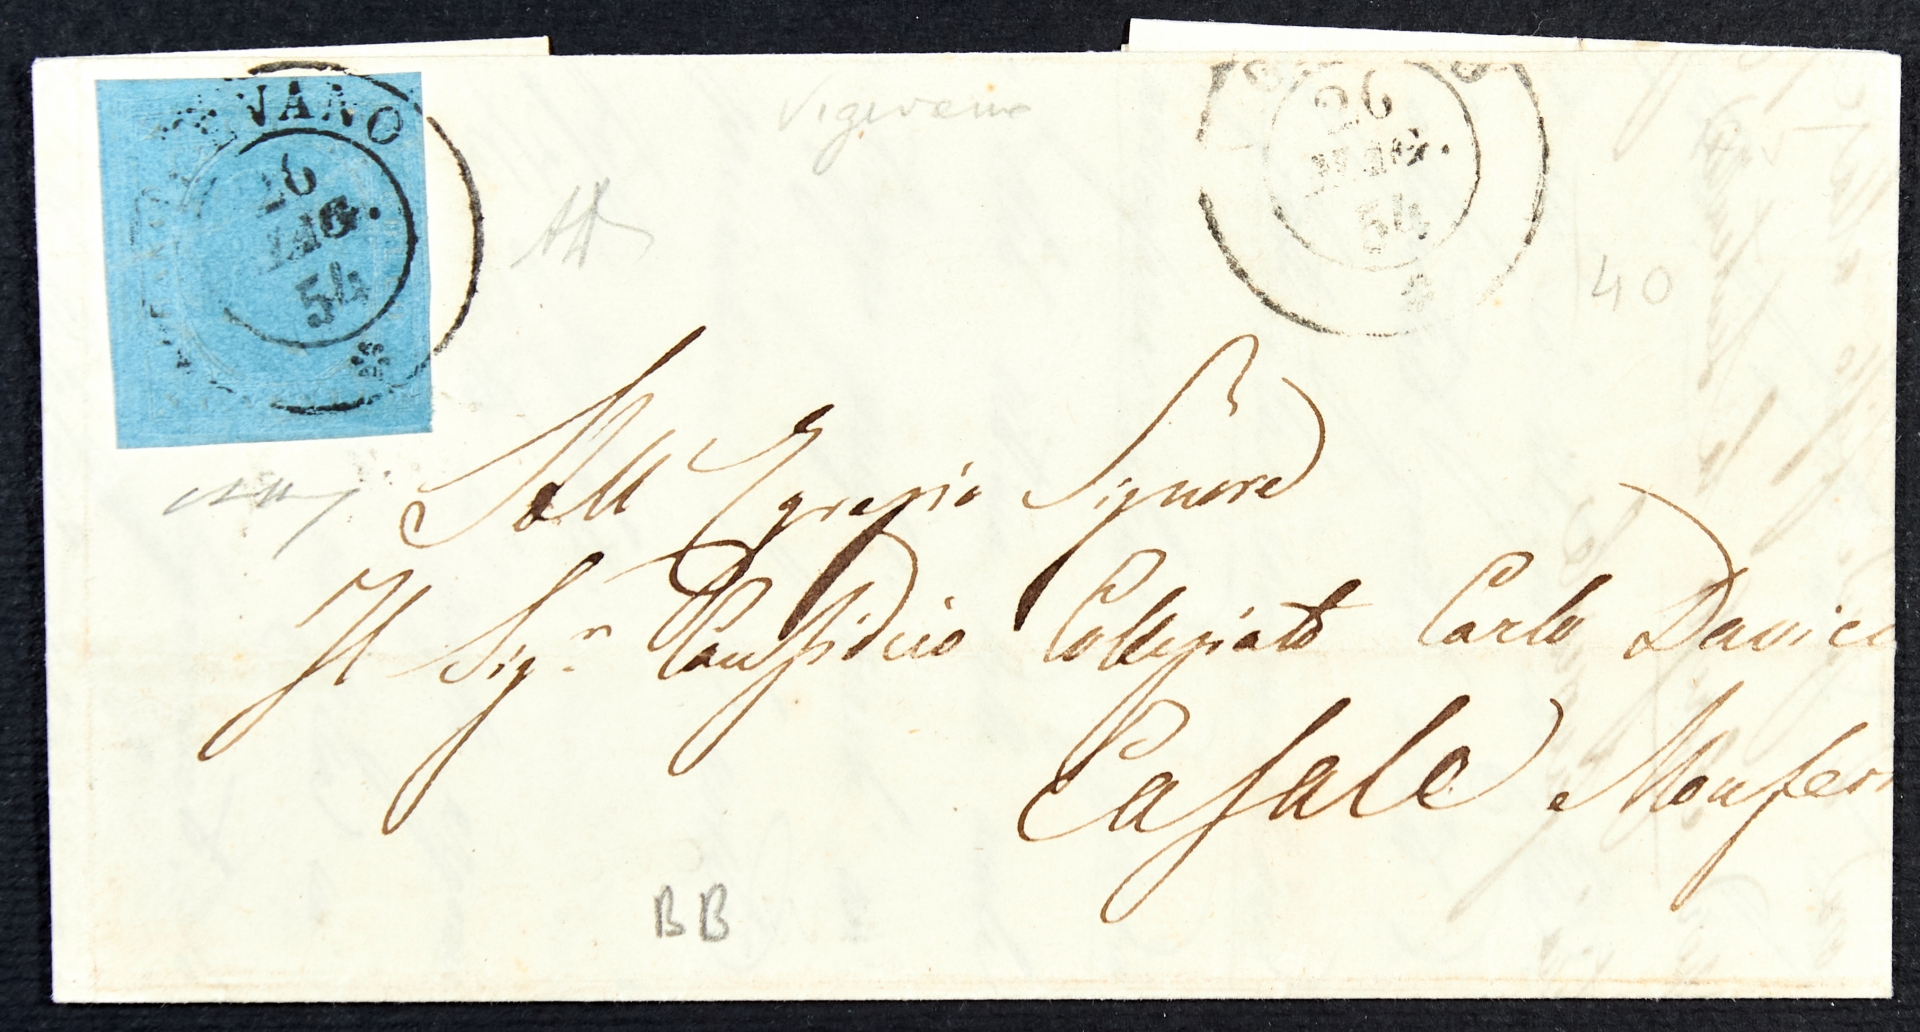 VANO
26
MAG.
54
Vigevano
26
MAG.
54
40
All Egregio Signore
Il Sigr. Causidico Collegiato Carlo Davic
Casale Monfer
BB